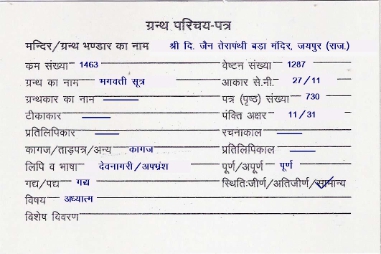 ग्रन्थ परिचय-पत्र
मन्दिर/ग्रन्थ भण्डार का नाम श्री दि. जैन तेरापंथी बडा मंदिर, जयपुर (राज.)
क्रम संख्या 1463 वेष्टन संख्या 1287
ग्रन्थ का नाम भगवती सूत्र आकार से.मी. 27/11
ग्रन्थकार का नाम पत्र (पृष्ठ) संख्या 730
टीकाकार पंक्ति अक्षर 11/31
प्रतिलिपिकार रचनाकाल
कागज/ताड़पत्र/अन्य कागज प्रतिलिपिकाल
लिपि व भाषा देवनागरी/अपभ्रंश पूर्ण/अपूर्ण पूर्ण
गद्य/पद्य गद्य स्थितिःजीर्ण/अतिजीर्ण/सामान्य
विषय अध्यात्म
विशेष विवरण